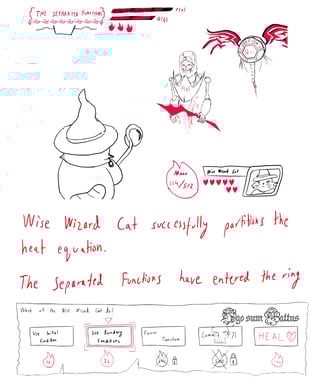 {THE SEPARATED FUNCTIONS}
Mana
114/512
Wise Wizard Cat
Wise Wizard Cat successfully partitions the
heat equation.
The Separated Functions have entered the ring
What will the Wise Wizard Cat do?
Ego sum Cattus
Use Initial
Condition
Use Boundary
Conditions
Fourier
Transform
HEAL